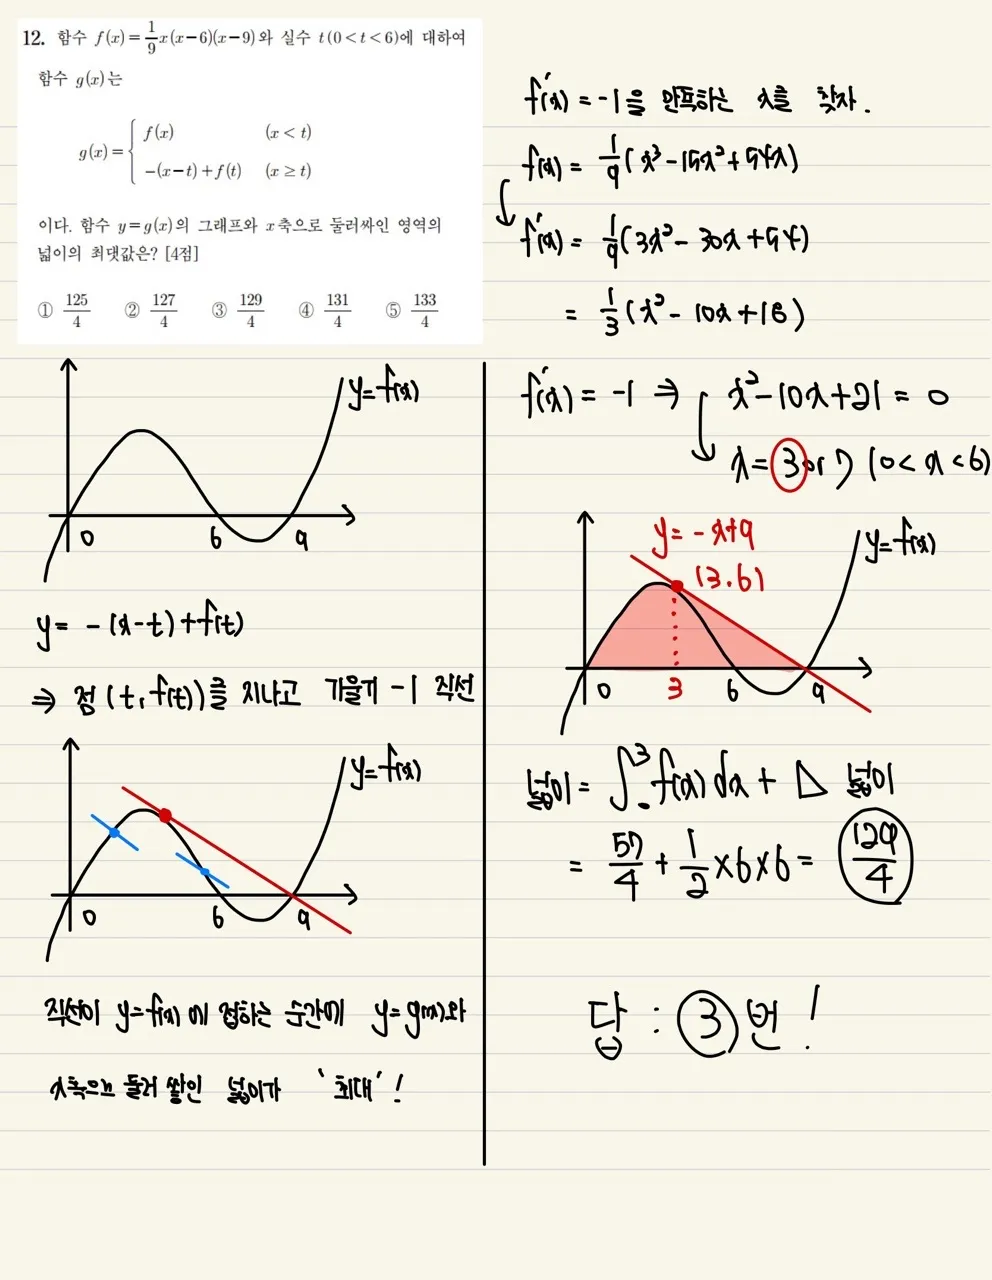 12. 함수 f(x)=1/9 x(x-6)(x-9)와 실수 t(0<t<6)에 대하여
함수 g(x)는
g(x)={ f(x) (x<t)
-(x-t)+f(t) (x≥t)
이다. 함수 y=g(x)의 그래프와 x축으로 둘러싸인 영역의
넓이의 최댓값은? [4점]
① 125/4 ② 127/4 ③ 129/4 ④ 131/4 ⑤ 133/4
y=f(x)
0 6 9
y= -(x-t)+f(t)
⇒ 점 (t, f(t))를 지나고 기울기 -1 직선
y=f(x)
0 6 9
직선이 y=f(x)에 접하는 순간에 y=g(x)와
x축으로 둘러 쌓인 넓이가 '최대'!
f'(x) = -1을 만족하는 x를 찾자.
f(x) = 1/9(x³-15x²+54x)
f'(x) = 1/9(3x²-30x+54)
= 1/3(x²-10x+18)
f'(x) = -1 ⇒ x²-10x+21=0
x=3 or 7 (0<x<6)
y=-x+9
y=f(x)
(3.6)
0 3 6 9
넓이= ∫₀³ f(x)dx + △ 넓이
= 57/4 + 1/2×6×6 = 129/4
답 : ③번!